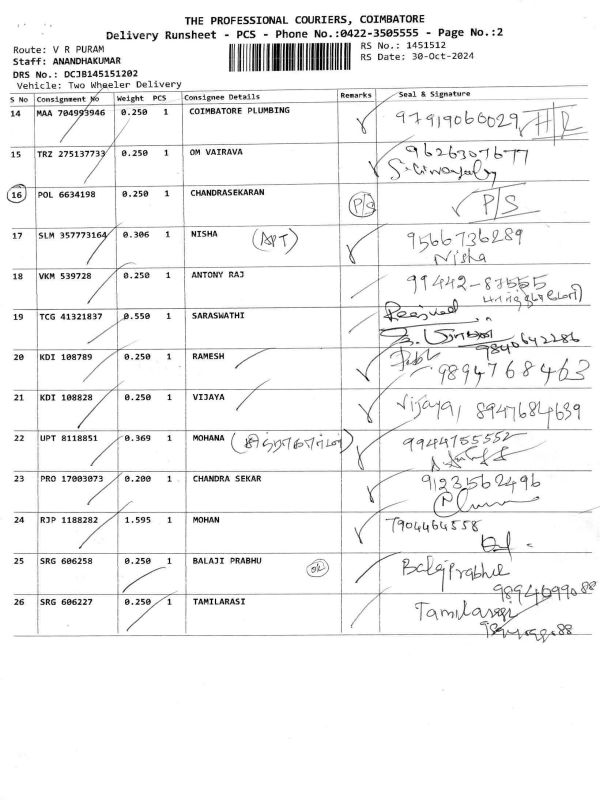 THE PROFESSIONAL COURIERS, COIMBATORE
Delivery Runsheet - PCS - Phone No.:0422-3505555 - Page No.:2
Route: V R PURAM RS No.: 1451512
Staff: ANANDHAKUMAR RS Date: 30-Oct-2024
DRS No.: DCJB145151202
Vehicle: Two Wheeler Delivery
S No Consignment No Weight PCS Consignee Details Remarks Seal & Signature
14 MAA 704993946 0.250 1 COIMBATORE PLUMBING 97919060029 H/R
15 TRZ 275137733 0.250 1 OM VAIRAVA 9626307677
16 POL 6634198 0.250 1 CHANDRASEKARAN P/S P/S
17 SLM 357773164 0.306 1 NISHA (APT) 9566736289
Nisha
18 VKM 539728 0.250 1 ANTONY RAJ 99442-87555
19 TCG 41321837 0.550 1 SARASWATHI Received
9840642286
20 KDI 108789 0.250 1 RAMESH 9894768463
21 KDI 108828 0.250 1 VIJAYA Vijaya, 8947684639
22 UPT 8118851 0.369 1 MOHANA 9944755552
23 PRO 17003073 0.200 1 CHANDRA SEKAR 9123562496
24 RJP 1188282 1.595 1 MOHAN 7904464558
25 SRG 606258 0.250 1 BALAJI PRABHU ok Balaji Prabhu
9894699088
26 SRG 606227 0.250 1 TAMILARASI Tamilarasi